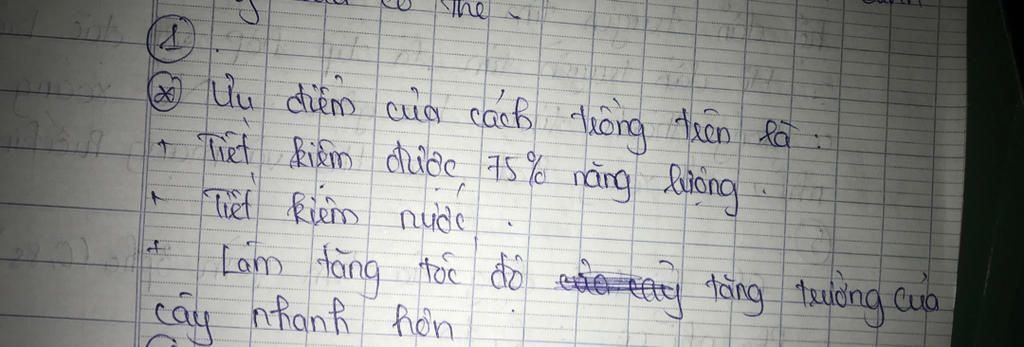 có thể.
①.
⊛ Ưu điểm của cách trồng trên là:
+ Tiết kiệm được 75% năng lượng.
+ Tiết kiệm nước.
+ Làm tăng tốc độ tăng trưởng của
cây nhanh hơn